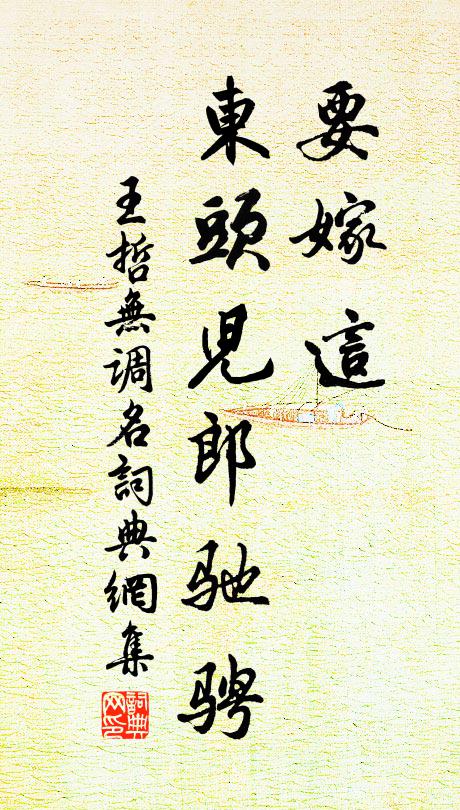 要嫁這
東頭児郎馳聘
王哲無調名詞典網集
詞典网印